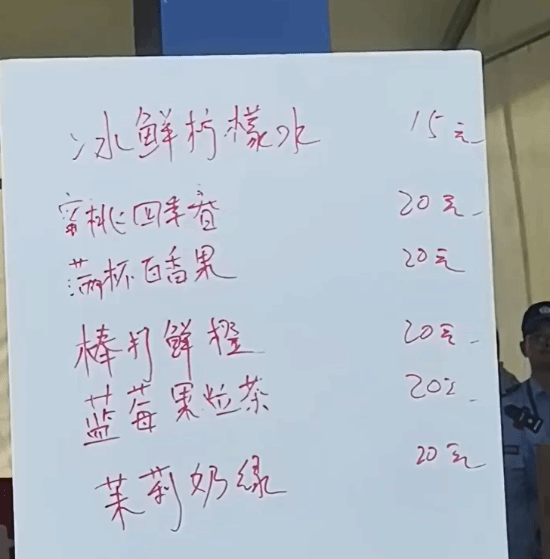 冰鲜柠檬水 15元
蜜桃四季春 20元
满杯百香果 20元
棒打鲜橙 20元
蓝莓果粒茶 20元
茉莉奶绿 20元